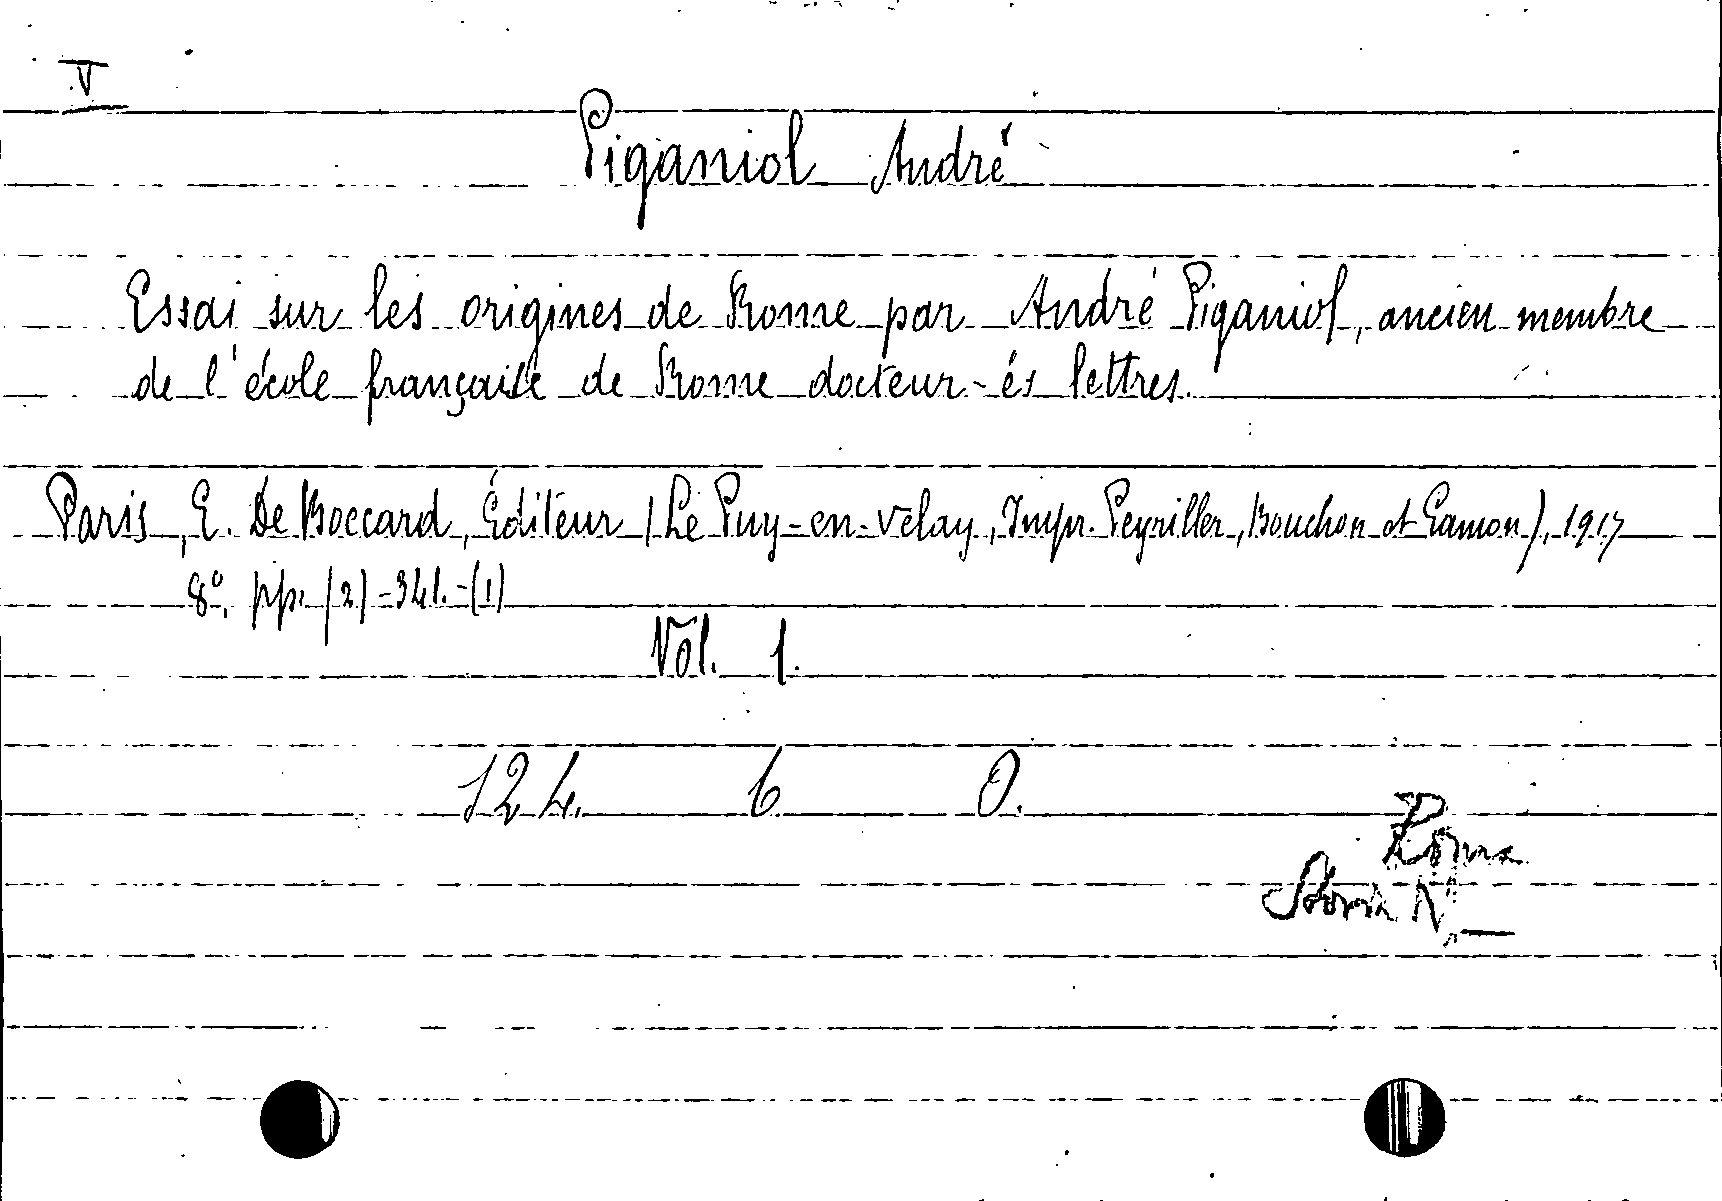 V
Piganiol André
Essai sur les origines de Rome par André Piganiol, ancien membre
de l'école française de Rome docteur-és lettres.
Paris, E. De Boccard, Éditeur (Le Puy-en-Velay, Impr. Peyriller, Bouchon et Gamon), 1917
8°, pp. (2)-341.-(1)
Vol. 1.
124. 6 0.
Roma
Storia